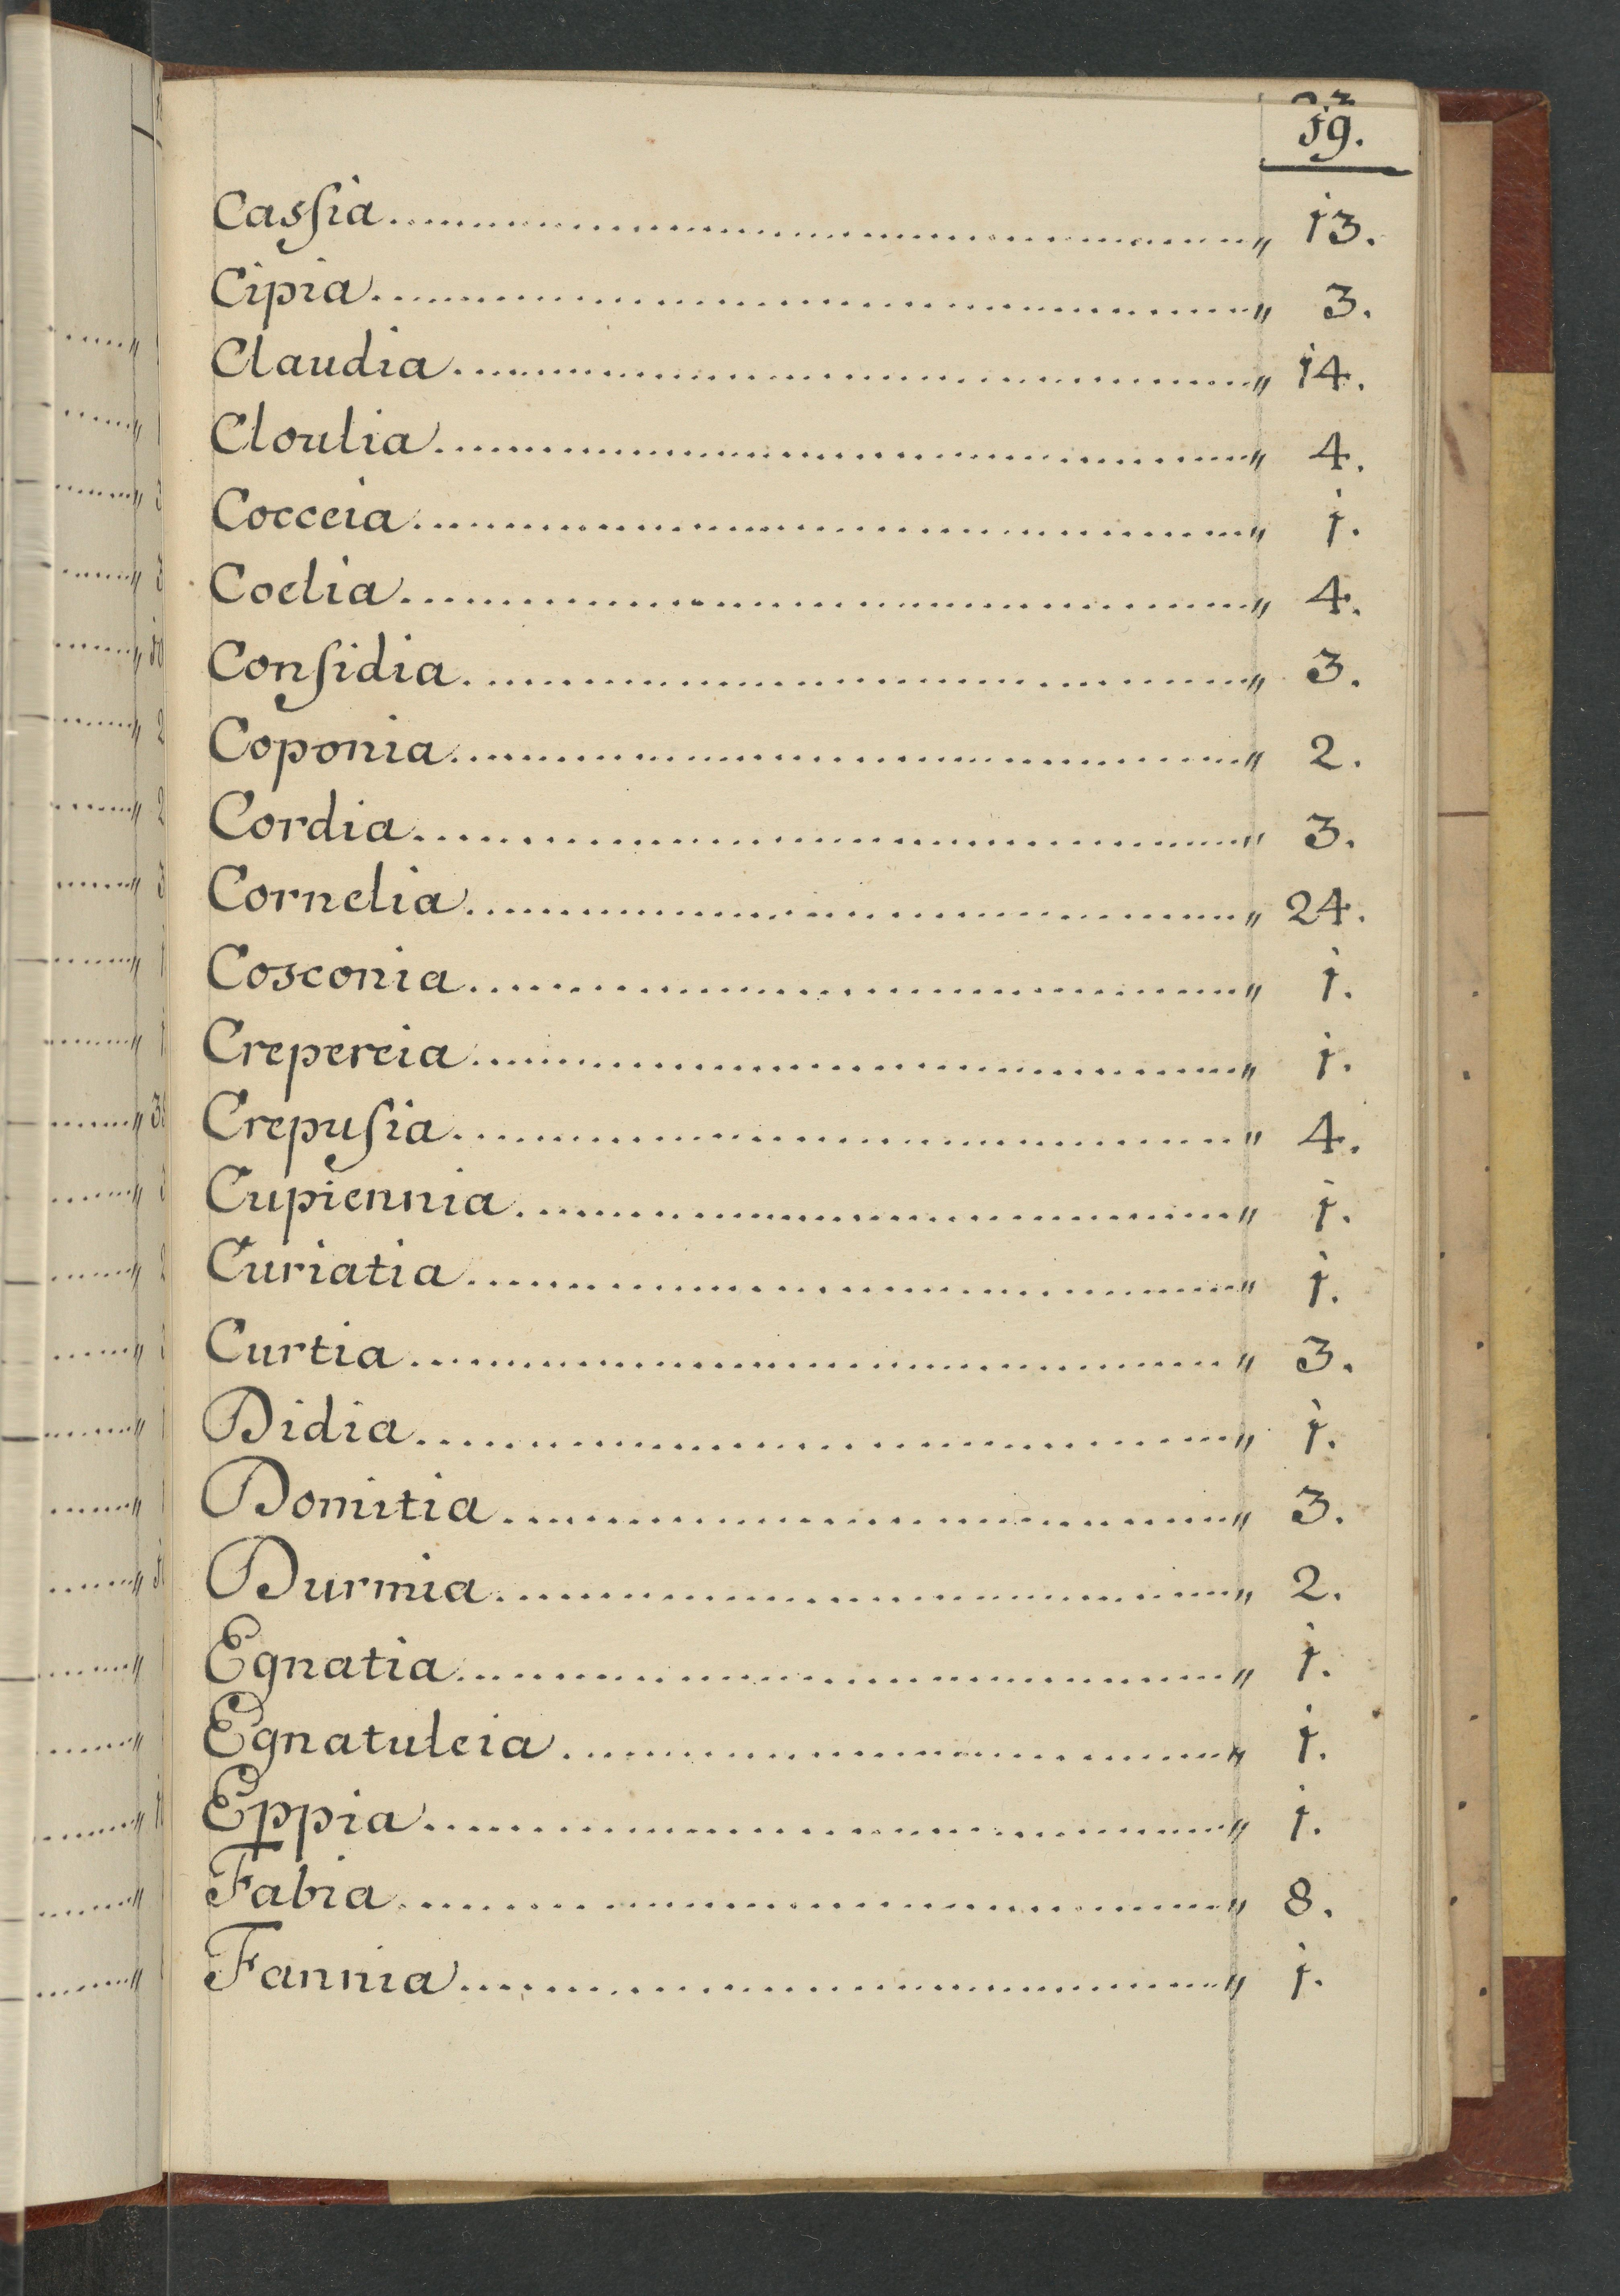 19.
Casſia " 13.
Cipia " 3.
Claudia " 14.
Cloulia " 4.
Cocceia " 1.
Coelia " 4.
Conſidia " 3.
Coponia " 2.
Cordia " 3.
Cornelia " 24.
Cosconia " 1.
Crepereia " 1.
Crepuſia " 4.
Cupiennia " 1.
Curiatia " 1.
Curtia " 3.
Didia " 1.
Domitia " 3.
Durmia " 2.
Egnatia " 1.
Egnatuleia " 1.
Eppia " 1.
Fabia " 8.
Fannia " 1.